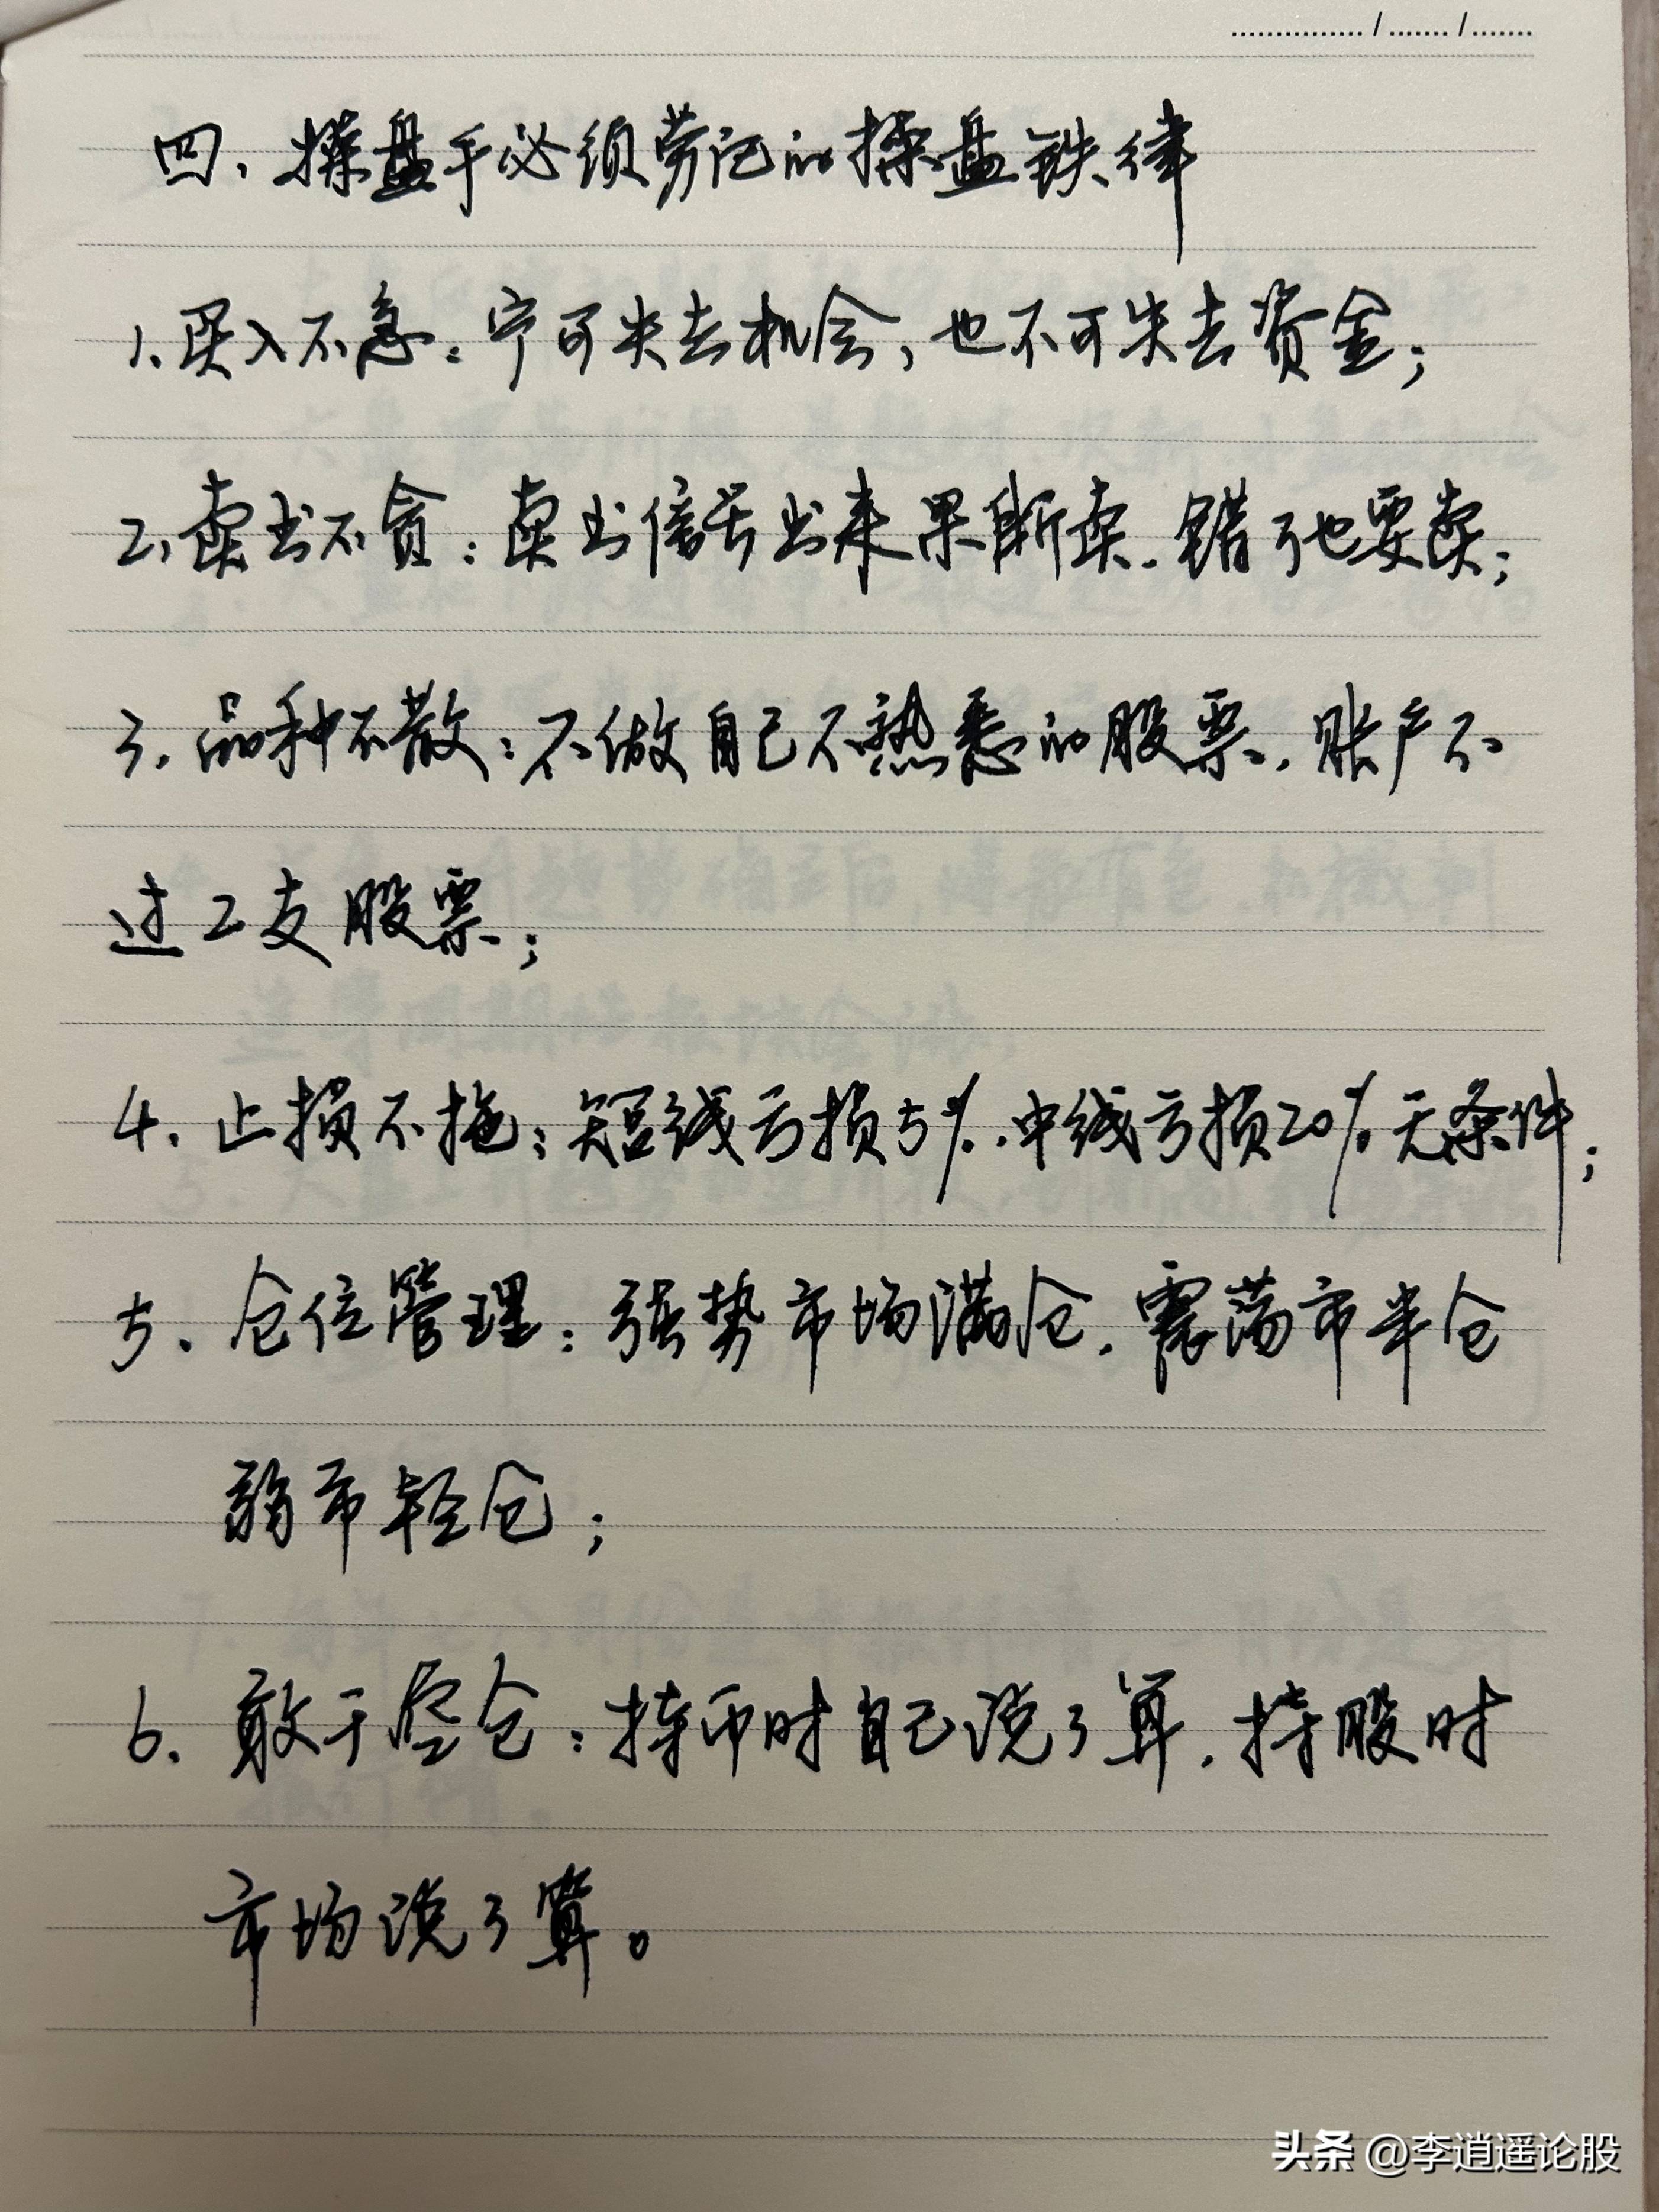 四、操盘手必须劳记的操盘铁律
1、买入不急：宁可失去机会，也不可失去资金；
2、卖出不贪：卖出信号出来果断卖.错了也要卖；
3、品种不散：不做自己不熟悉的股票.账户不
过2支股票；
4、止损不拖：短线亏损5%.中线亏损20%无条件；
5、仓位管理：强势市场满仓.震荡市半仓
弱市轻仓；
6、敢于空仓：持币时自己说了算.持股时
市场说了算。
头条 @李逍遥论股